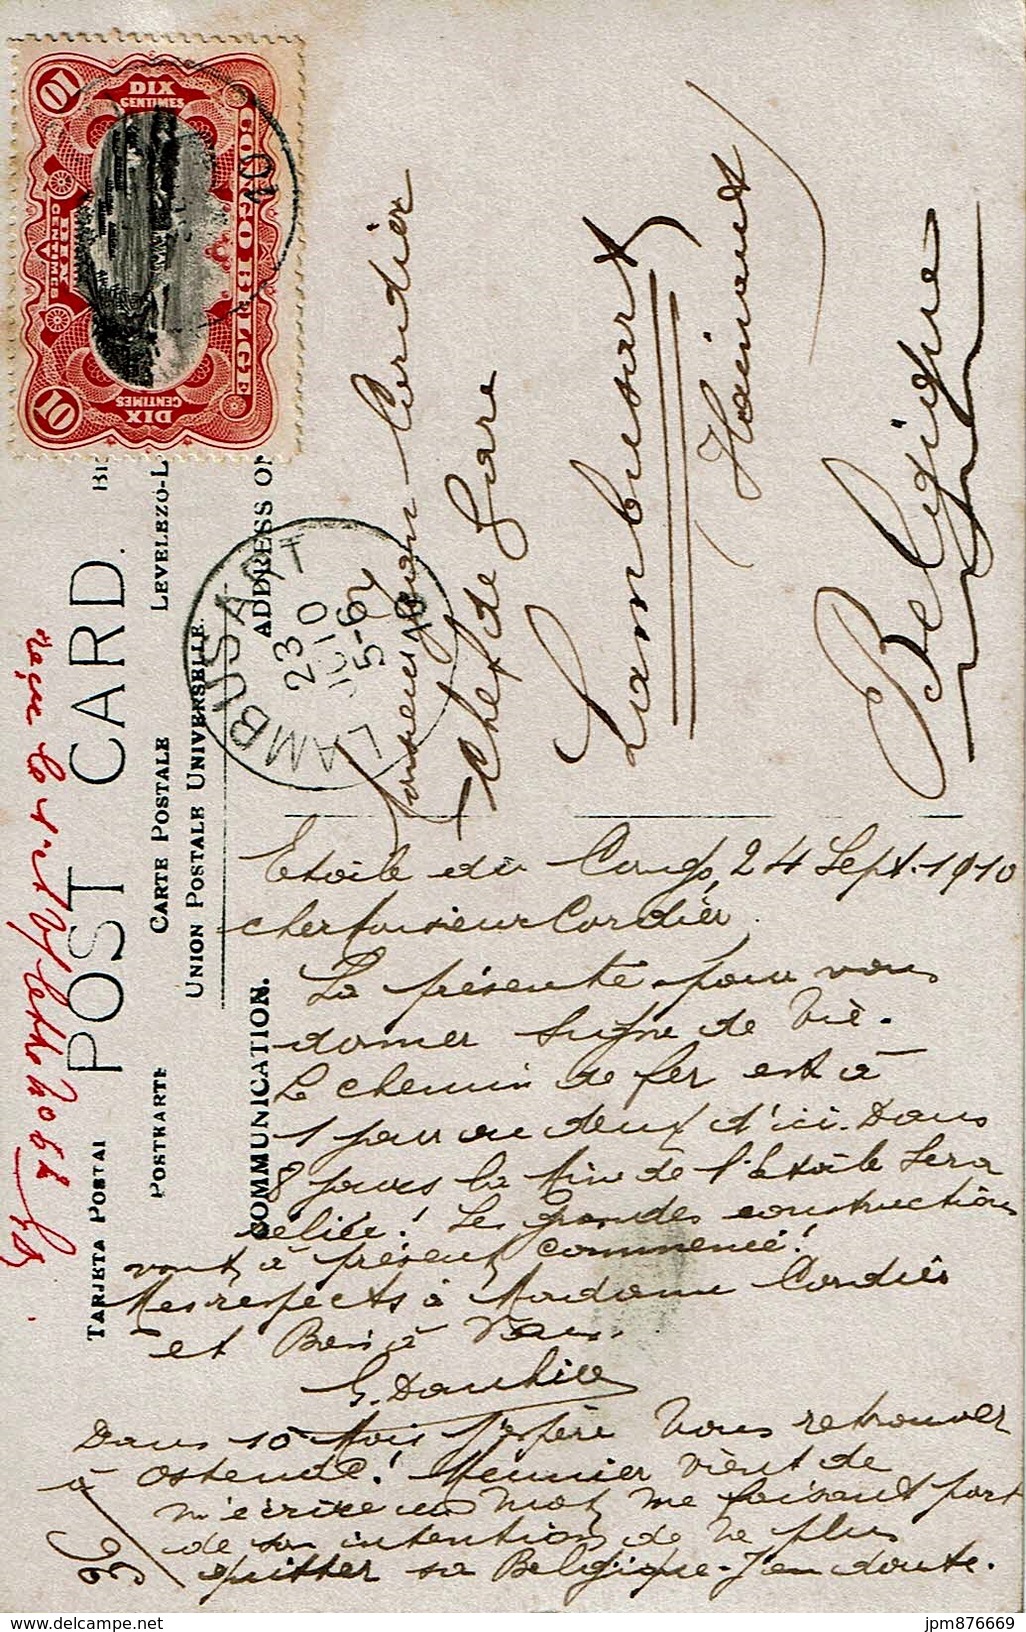 DIX CENTIMES
CONGO BELGE
10
TIEN CENTIMES
DIX CENTIMES
10
10
POST CARD.
CARTE POSTALE
LEVELEZŐ-L
POSTKARTE
TARJETA POSTAL
UNION POSTALE UNIVERSELLE.
COMMUNICATION.
ADDRESS ON
LAMBUSART
23
10
5-6
10
Monsieur Cordier
Chef de Gare
Lambusart
(Hainaut)
Belgique
Etoile du Congo, 24 Sept. 1910
Cher Monsieur Cordier,
La présente pour vous
donner signe de vie.
Le chemin de fer est à
1 jour ou deux d'ici. Dans
8 jours la Mine de l'Etoile sera
reliée! Les grandes constructions
vont à présent commencé!
Mes respects à Madame Cordier
et Bien à Vous
Dans 10 Mois j'espère Vous retrouver
à Ostende! Meunier vient de
m'écrire un mot, me faisant part
de son intention de ne plus
quitter sa Belgique - J'en doute.
jpm876669